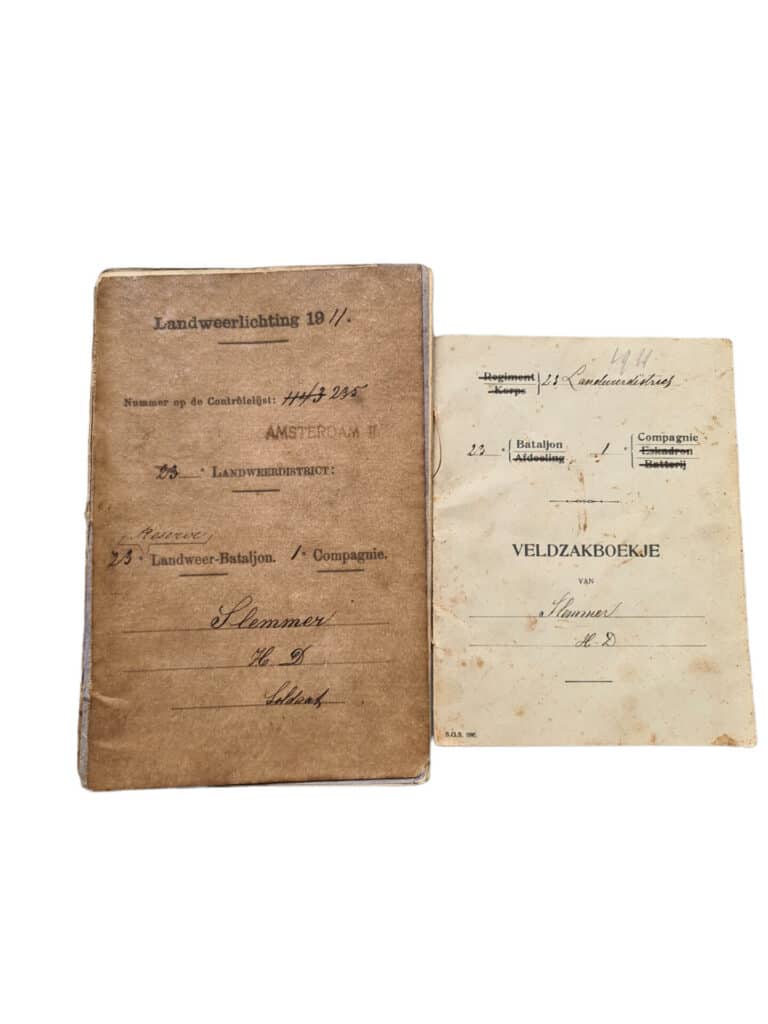 Landweerlichting 1911.
Nummer op de Contrôlelijst: 443 235
AMSTERDAM II
23e LANDWEERDISTRICT:
Reserve
23e Landweer-Bataljon. 1e Compagnie.
Slemmer
H D
Soldaat
1911
Regiment
Korps
23 Landweerdistrict
23 Bataljon
Afdeeling
1 Compagnie
Eskadron
Batterij
VELDZAKBOEKJE
VAN
Slemmer
H-D